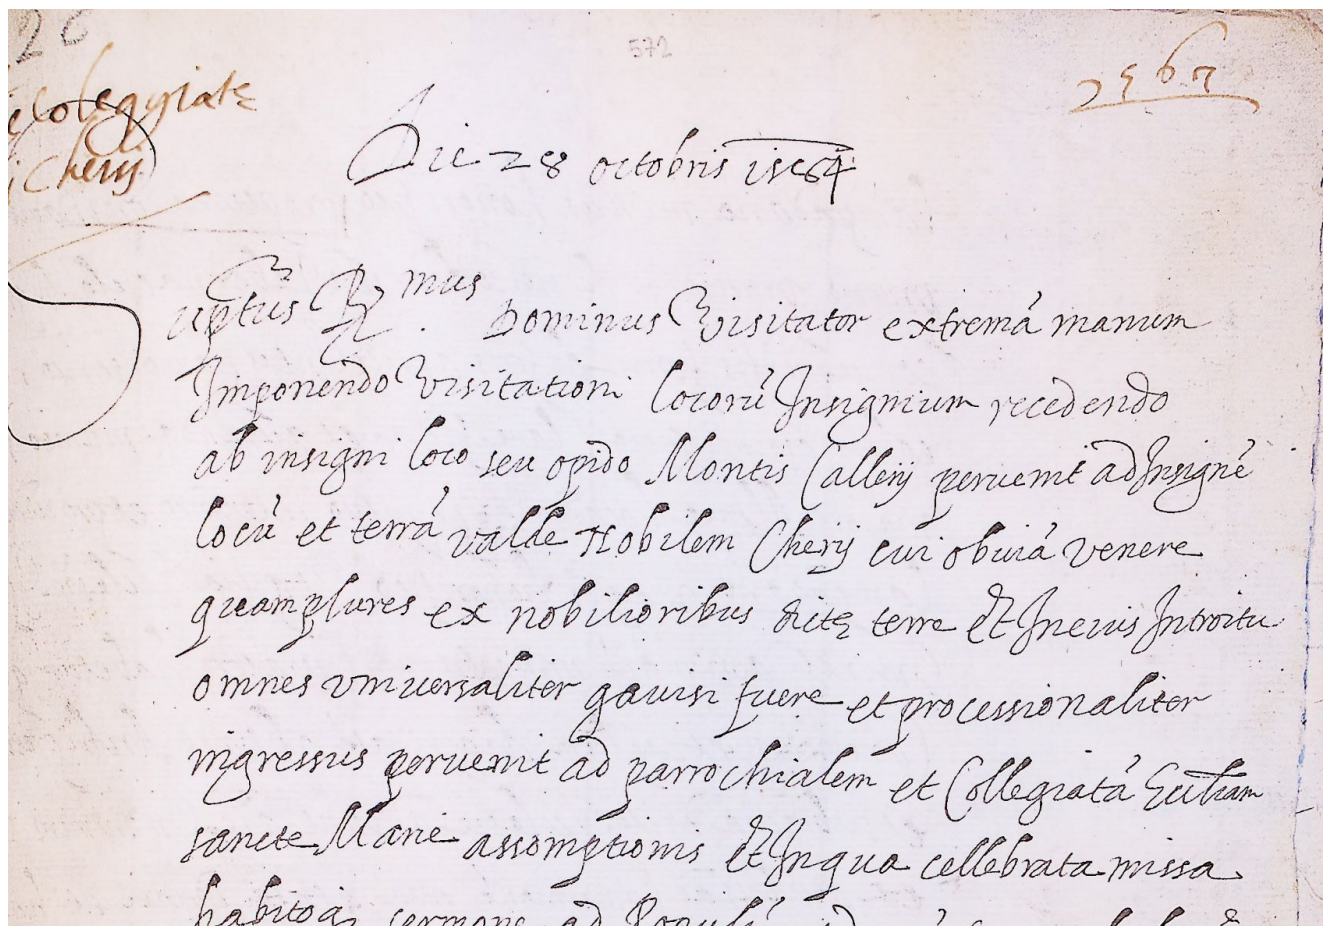 26
572
1567
Colegyiate
Cherij
Die 28 octobris 1584
Suptus Rmus Dominus Visitator extremā manum
Imponendo Visitationi locorū Insignium recedendo
ab insigni loco seu opido Montis Callerij peruenit ad Insignē
locū et terrā valde Nobilem Cherij cui obuiā venere
quamplures ex nobilioribus dictę terre Et In eius Introitu
omnes vniuersaliter gauisi fuere et processionaliter
ingressus peruenit ad parrochialem et Collegiatā Eccłiam
sancte Marie assomptionis Et In qua cellebrata missa
habitoq sermone ad Populū